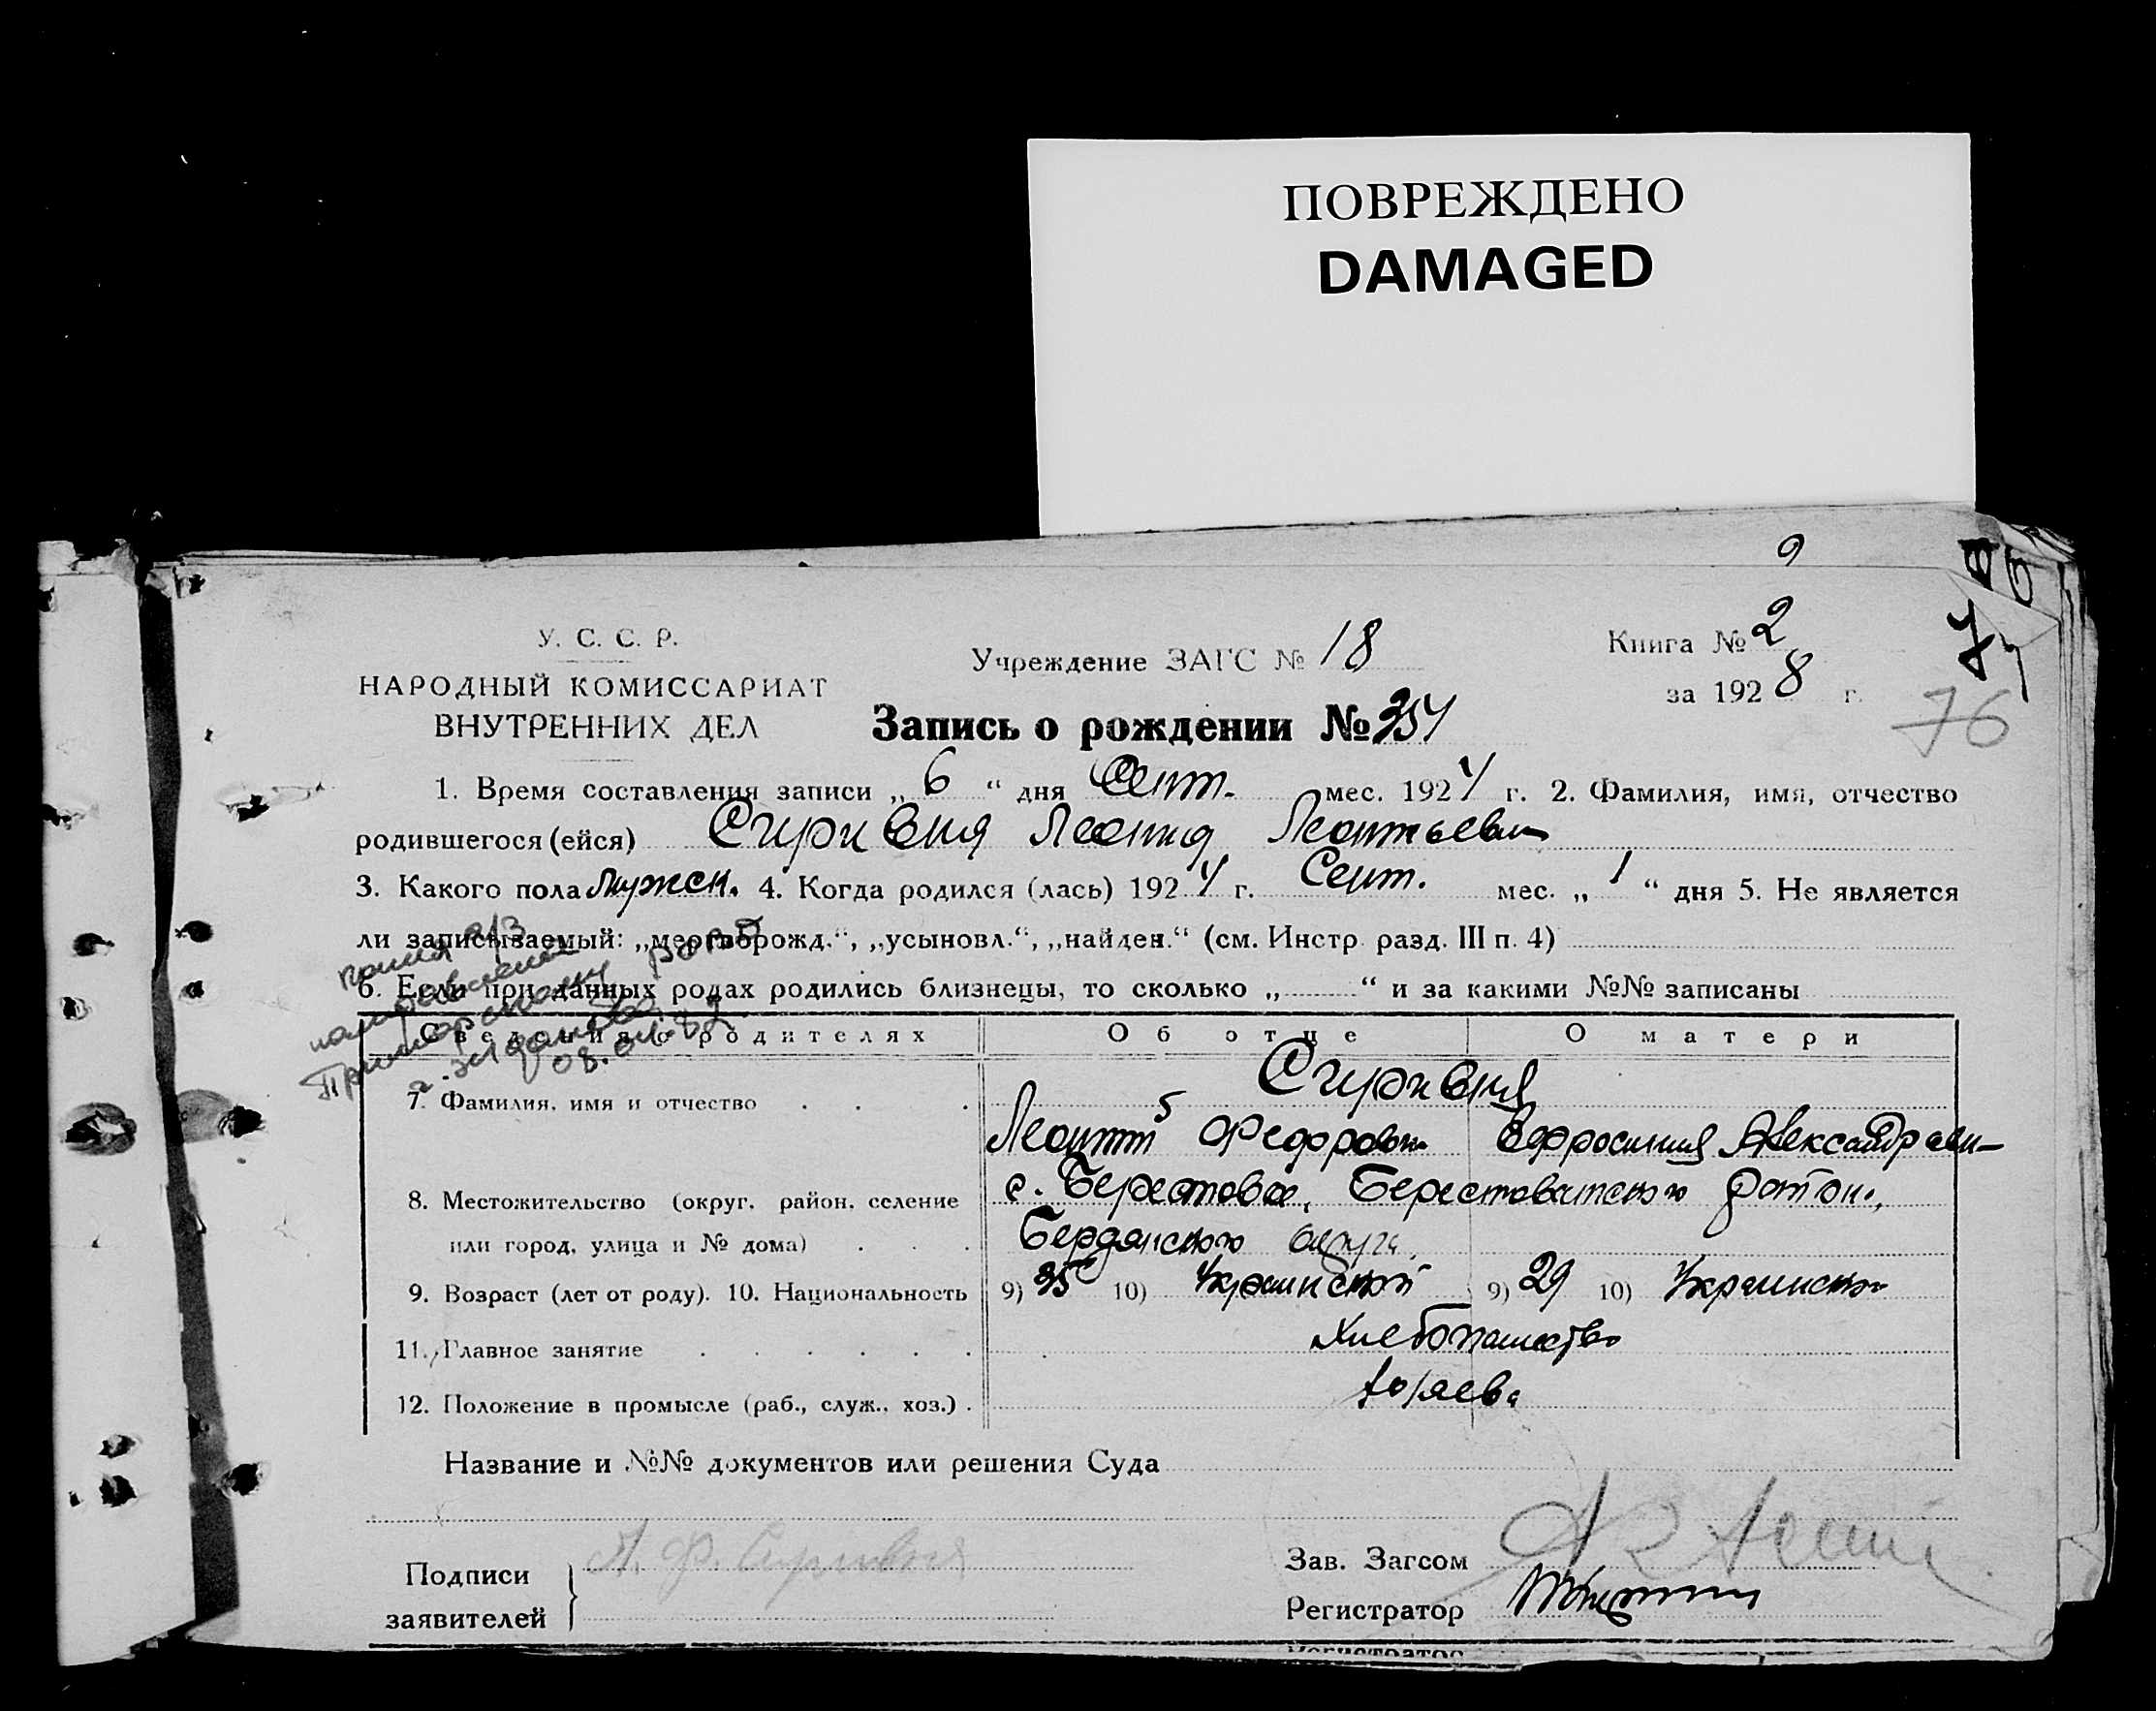 ПОВРЕЖДЕНО
DAMAGED
9
У. С. С. Р.
НАРОДНЫЙ КОМИССАРИАТ
ВНУТРЕННИХ ДЕЛ
Учреждение ЗАГС № 18
Книга № 2
за 1928 г.
76
Запись о рождении № 354
1. Время составления записи „ 6 “ дня Сент. мес. 1924 г. 2. Фамилия, имя, отчество
родившегося (ейся) Леонид Леонтьевич
3. Какого пола Мужск. 4. Когда родился (лась) 1924 г. Сент. мес. „ 1 “ дня 5. Не является
ли записываемый: „мертворожд.“, „усыновл.“, „найден.“ (см. Инстр. разд. III п. 4)
6. Если при данных родах родились близнецы, то сколько „ “ и за какими №№ записаны
г. Жданова
08.04.82
Сведения о родителях Об отце О матери
7. Фамилия, имя и отчество
Леонтий Федорович Ефросиния Александровн
8. Местожительство (округ, район, селение с. Берестовое, Берестоватского район.,
или город, улица и № дома) Бердянского округа.
9. Возраст (лет от роду). 10. Национальность 9) 35 10) Украинской 9) 29 10) Украинской
11. Главное занятие Хлебопашество
12. Положение в промысле (раб., служ., хоз.). хозяева
Название и №№ документов или решения Суда
Подписи
заявителей
Зав. Загсом
Регистратор
Регистратор